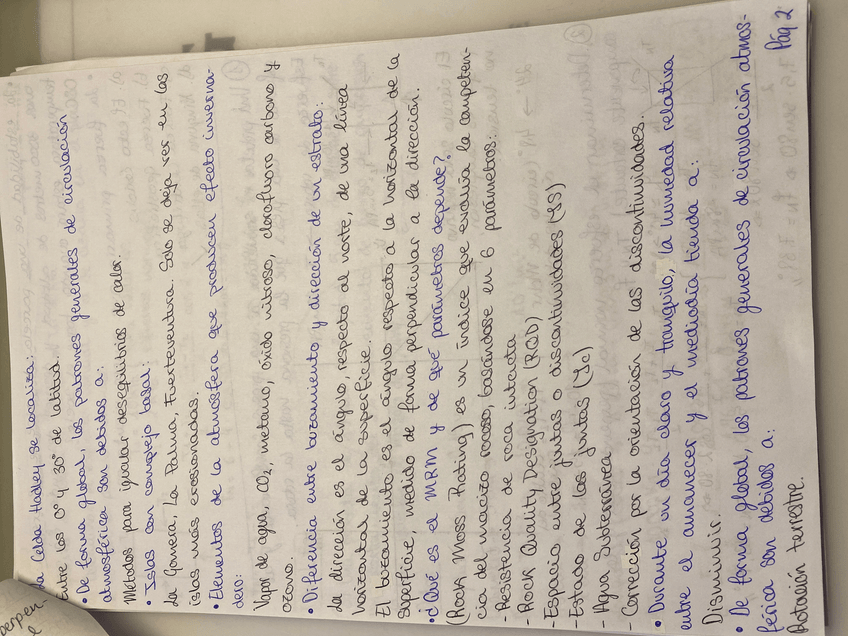 La Celda Hadley se localiza:
entre los 0° y 30° de latitud.
• De forma global, los patrones generales de circulación
atmosférica son debidos a:
Métodos para igualar desequilibrios de calor.
• Islas con complejo basal:
La Gomera, La Palma, Fuerteventura. Solo se deja ver en las
islas más erosionadas.
• Elementos de la atmósfera que producen efecto inverna-
dero:
Vapor de agua, CO2, metano, óxido nitroso, clorofluoro carbono y
ozono.
• Diferencia entre buzamiento y dirección de un estrato:
La dirección es el ángulo, respecto al norte, de una línea
horizontal de la superficie.
El buzamiento es el ángulo respecto a la horizontal de la
superficie, medido de forma perpendicular a la dirección.
• ¿Qué es el MRM y de qué parámetros depende?
(Rock Mass Rating) es un índice que evalúa la competen-
cia del macizo rocoso, basándose en 6 parámetros:
- Resistencia de roca intacta
- Rock Quality Designation (RQD)
- Espacio entre juntas o discontinuidades (JS)
- Estado de las juntas (Jc)
- Agua subterránea
- Corrección por la orientación de las discontinuidades.
• Durante un día claro y tranquilo, la humedad relativa
entre el amanecer y el mediodía tienda a:
Disminuir.
• De forma global, los patrones generales de circulación atmos-
férica son debidos a:
Rotación terrestre.
Pág 2
perpen-